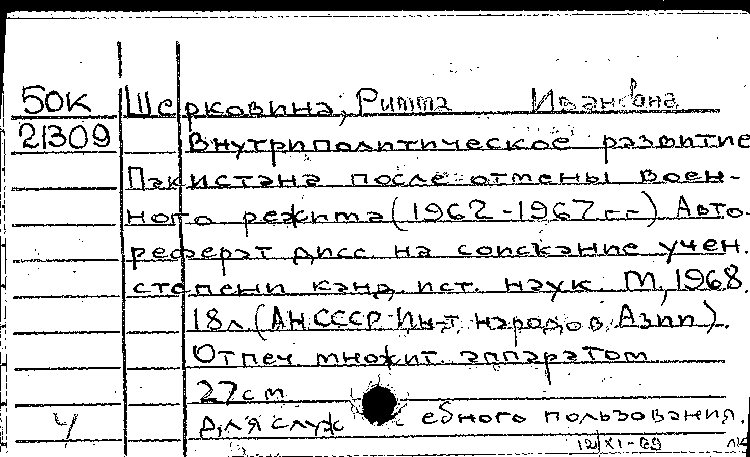 50К Шерковина, Римма Ивановна
21309 Внутриполитическое развитие
Пакистана после отмены воен-
ного режима (1962-1967 гг.) Авто-
реферат дисс. на соискание учен.
степени канд. ист. наук. М, 1968.
18л. (АН СССР. Ин-т народов Азии).
Отпеч. множит. аппаратом
27см
Ч Для служебного пользования.
12/XI-69